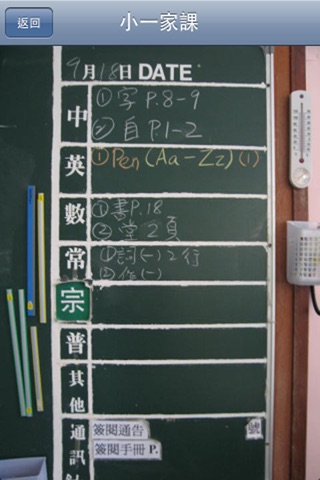 返回
小一家課
9月18日 DATE
中
①字 P.8-9
②自 P.1-2
英
①Pen (Aa-Zz) (1)
數
①書P.18
②堂2頁
常
①詞(一)2行
②作(一)
宗
普
其他
通訊
簽閱通告
號
簽閱手冊 P.